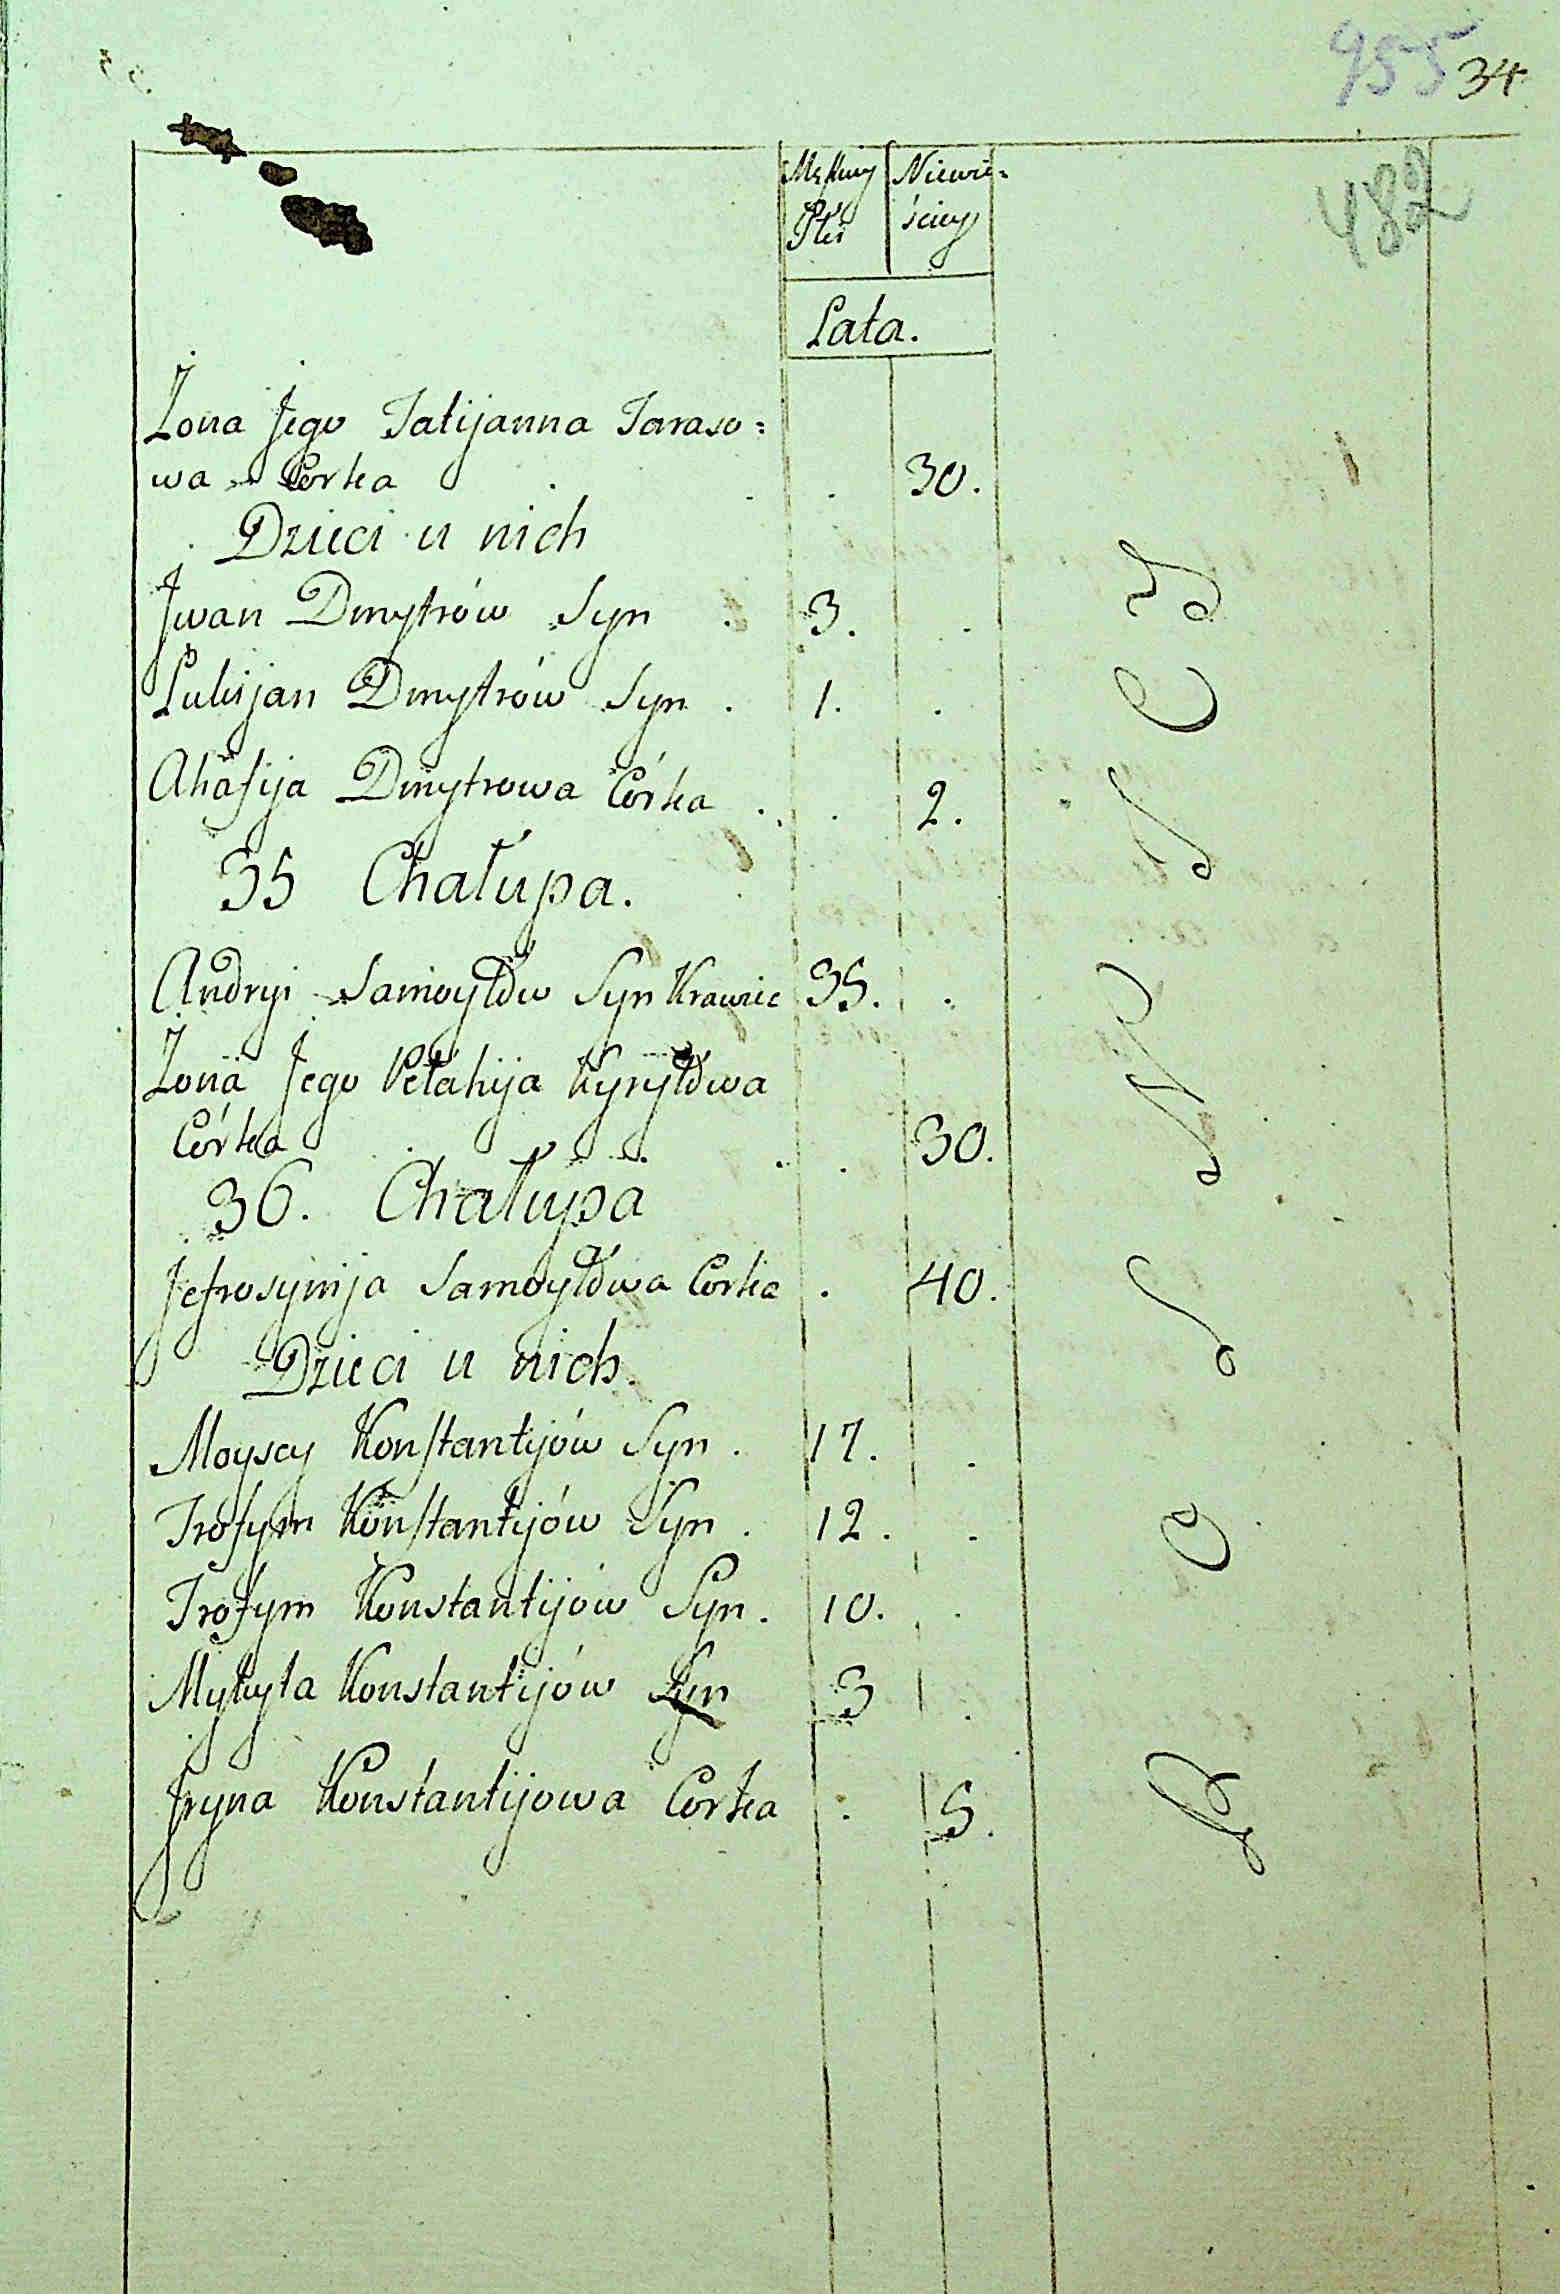 955 34
482
Męskiey Niewie=
Płci ściey
Lata.
Żona Jego Tatijanna Taraso=
wa Corka . . 30.
Dzieci u nich
Jwan Dmytrów Syn . 3. .
Lukijan Dmytrów Syn . 1. .
Ahafija Dmytrowa Córka . . 2.
35 Chałupa.
Andryi Samoyłów Syn Krawiec 35. .
Żona Jego Pełahija Kyryłówa
Córka . . 30.
36. Chałupa
Jefrosynija Samoyłówa Corka . 40.
Dzieci u nich.
Moysey Konstantijów Syn . 17. .
Trofym Konstantijów Syn . 12. .
Trofym Konstantijów Syn . 10. .
Mykyta Konstantijów Syn 3 .
Jryna Konstantijowa Corka . 5.